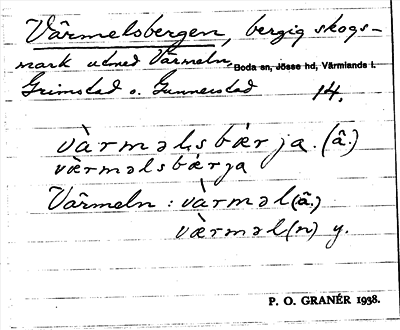 Värmelsbergen, bergig skogs-
mark utmed Värmeln
Boda sn, Jösse hd, Värmlands l.
Grimstad o. Gunnerstad 14.
vàrməlsbǽrja. (ā.)
vǽrməlsbǽrja
Värmeln : vàrməl(ā.)
vǽrməl(n) y.
P. O. GRANÉR 1938.